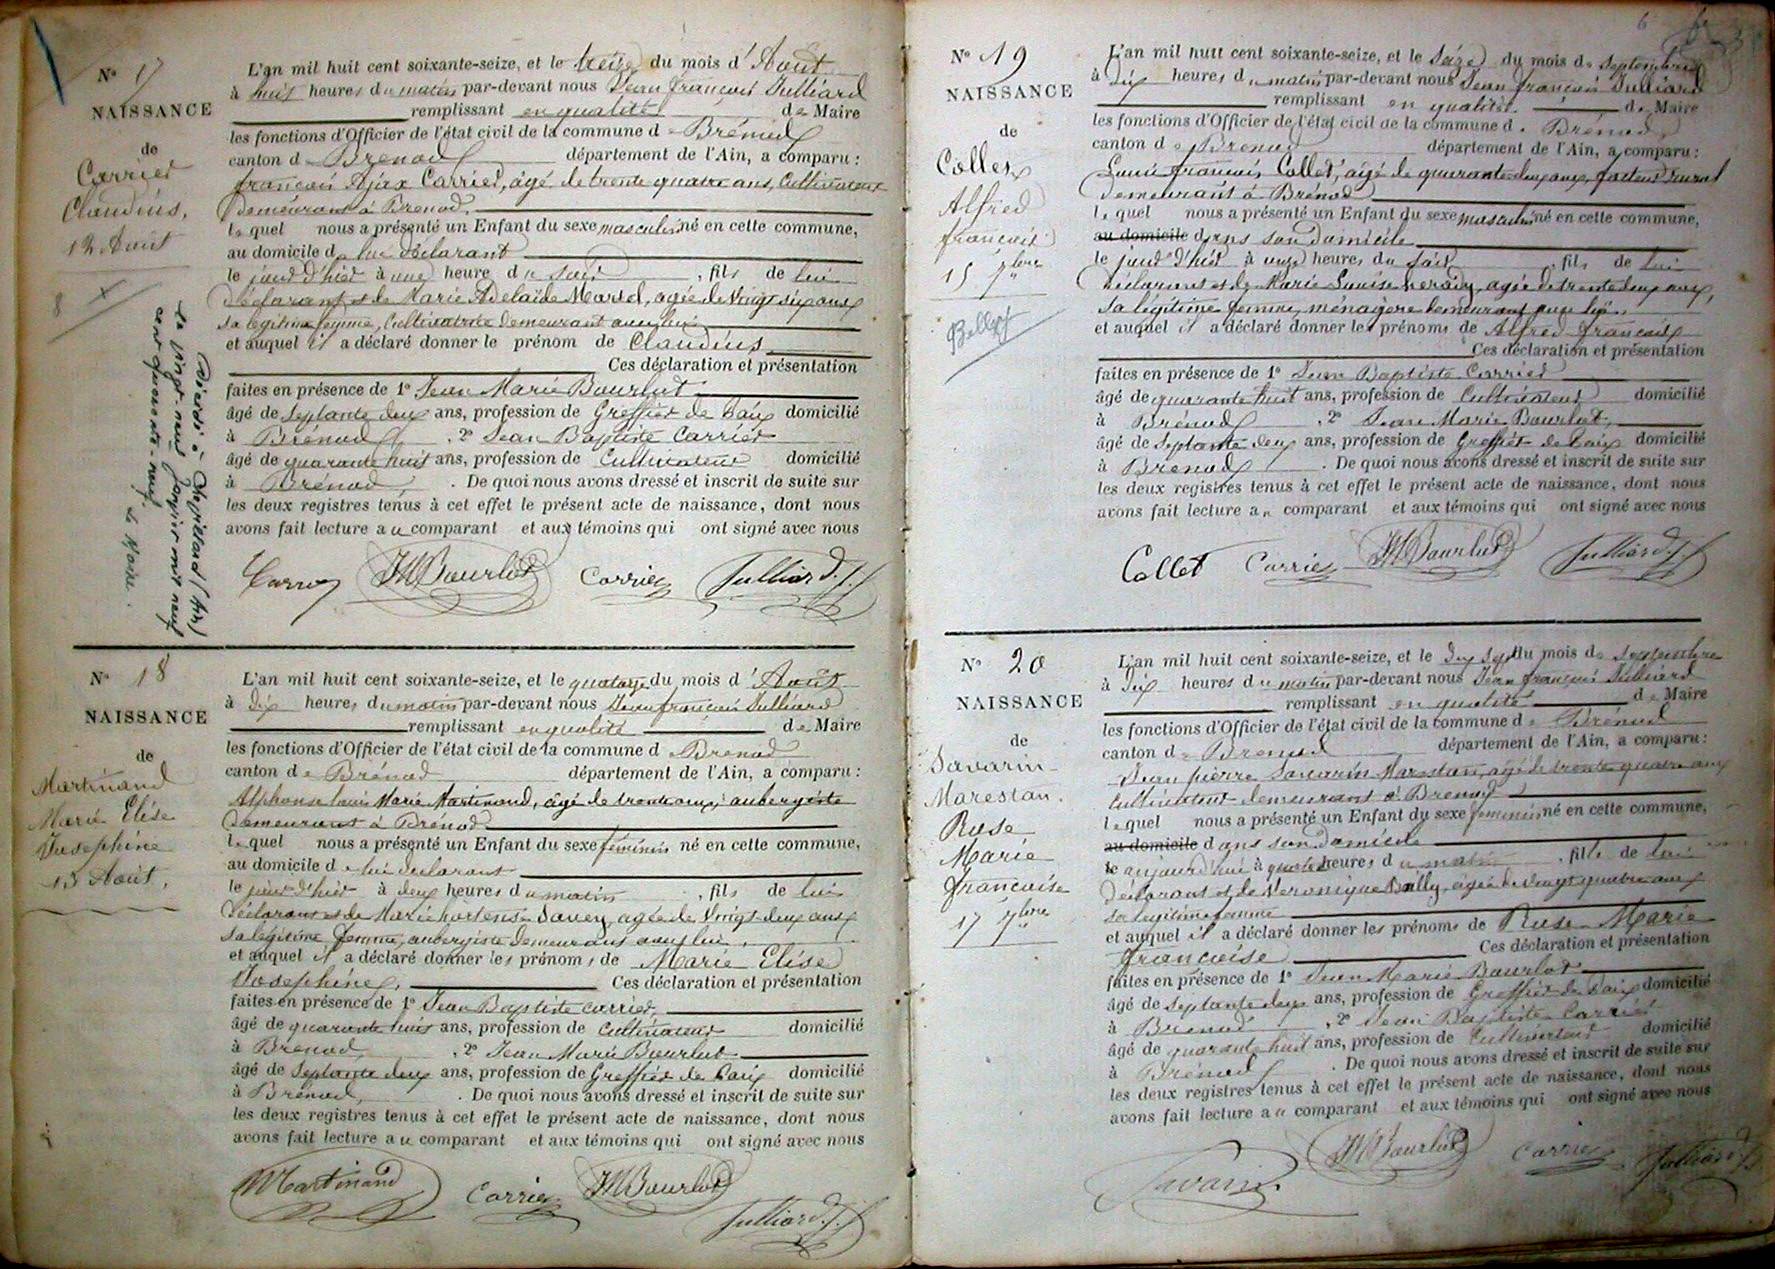 N° 17
NAISSANCE
de
Carrier
Claudius,
12 Août
8
Décédé à Chevillard (Ain)
le vingt neuf janvier mil neuf
cent quarante-neuf.
Le Maire.
L'an mil huit cent soixante-seize, et le treize du mois d'Août
à huit heures du matin par-devant nous Jean François Julliard
remplissant en qualité de Maire
les fonctions d'Officier de l'état civil de la commune de Brénod
canton de Brenod département de l'Ain, a comparu :
françois Ajax Carrier, âgé de trente quatre ans, Cultivateur
demeurant à Brenod,
lequel nous a présenté un Enfant du sexe masculin né en cette commune,
au domicile de lui déclarant
le jour d'hier à une heure du soir, fils de lui
déclarant et de Marie Adelaïde Martel, agée de Vingt six ans
sa légitime femme, Cultivatrice demeurant avec lui
et auquel il a déclaré donner le prénom de Claudius
Ces déclaration et présentation
faites en présence de 1° Jean Marie Bourlot
âgé de septante deux ans, profession de Greffier de Paix domicilié
à Brénod, 2° Jean Baptiste Carrier
âgé de quarante huit ans, profession de Cultivateur domicilié
à Brénod, . De quoi nous avons dressé et inscrit de suite sur
les deux registres tenus à cet effet le présent acte de naissance, dont nous
avons fait lecture au comparant et aux témoins qui ont signé avec nous
Carrier JMBourlot Carrier Julliard J. f
N° 18
NAISSANCE
de
Martinand
Marie Elise
Josephine
13 Août,
L'an mil huit cent soixante-seize, et le quatorze du mois d'Août
à dix heures du matin par-devant nous Jean françois Julliard
remplissant en qualité de Maire
les fonctions d'Officier de l'état civil de la commune de Brenod
canton de Brénod département de l'Ain, a comparu :
Alphonse Louis Marie Martinand, âgé de trente ans, aubergiste
demeurant à Brénod
lequel nous a présenté un Enfant du sexe féminin né en cette commune,
au domicile de lui déclarant
le jour d'hier à deux heures du matin, fils de lui
déclarant et de Marie hortense Savey, agée de Vingt deux ans
sa légitime femme, aubergiste demeurant avec lui,
et auquel il a déclaré donner les prénoms de Marie Elise
Josephine, Ces déclaration et présentation
faites en présence de 1° Jean Baptiste Carrier,
âgé de quarante huit ans, profession de Cultivateur domicilié
à Brénod, 2° Jean Marie Bourlot
âgé de septante deux ans, profession de Greffier de Paix domicilié
à Brénod, . De quoi nous avons dressé et inscrit de suite sur
les deux registres tenus à cet effet le présent acte de naissance, dont nous
avons fait lecture au comparant et aux témoins qui ont signé avec nous
Martinand Carrier JMBourlot Julliard J. f
6
N° 19
NAISSANCE
de
Collet
Alfred
françois
15 7bre
Belley
L'an mil huit cent soixante-seize, et le seize du mois de septembre
à dix heures du matin par-devant nous Jean françois Julliard
remplissant en qualité de Maire
les fonctions d'Officier de l'état civil de la commune de Brénod,
canton de Brenod département de l'Ain, a comparu :
Louis françois Collet, âgé de quarante deux ans, facteur rural
demeurant à Brénod
lequel nous a présenté un Enfant du sexe masculin né en cette commune,
au domicile dans son domicile
le jour d'hier à onze heures du soir, fils de lui
déclarant et de Marie Louise agée de trente deux ans,
sa légitime femme, ménagère demeurant avec lui,
et auquel il a déclaré donner les prénoms de Alfred françois
Ces déclaration et présentation
faites en présence de 1° Jean Baptiste Carrier
âgé de quarante huit ans, profession de Cultivateur domicilié
à Brénod, 2° Jean Marie Bourlot,
âgé de septante deux ans, profession de Greffier de Paix domicilié
à Brenod . De quoi nous avons dressé et inscrit de suite sur
les deux registres tenus à cet effet le présent acte de naissance, dont nous
avons fait lecture au comparant et aux témoins qui ont signé avec nous
Collet Carrier JMBourlot Julliard J. f
N° 20
NAISSANCE
de
Savarin
Marestan.
Rose
Marie
françoise
17 7bre
L'an mil huit cent soixante-seize, et le dix sept du mois de septembre
à dix heures du matin par-devant nous Jean françois Julliard
remplissant en qualité de Maire
les fonctions d'Officier de l'état civil de la commune de Brénod
canton de Brenod département de l'Ain, a comparu :
Jean pierre Savarin Marestan, âgé de trente quatre ans
Cultivateur demeurant à Brenod
lequel nous a présenté un Enfant du sexe féminin né en cette commune,
au domicile dans son domicile
le aujourd'hui à quatre heures du matin, fils de lui
déclarant et de Véronique Bailly, agée de vingt quatre ans
sa légitime femme
et auquel il a déclaré donner les prénoms de Rose Marie
françoise Ces déclaration et présentation
faites en présence de 1° Jean Marie Bourlot
âgé de septante deux ans, profession de Greffier de Paix domicilié
à Brenod, 2° Jean Baptiste Carrier
âgé de quarante huit ans, profession de Cultivateur domicilié
à Brénod . De quoi nous avons dressé et inscrit de suite sur
les deux registres tenus à cet effet le présent acte de naissance, dont nous
avons fait lecture au comparant et aux témoins qui ont signé avec nous
Savarin JMBourlot Carrier Julliard J. f